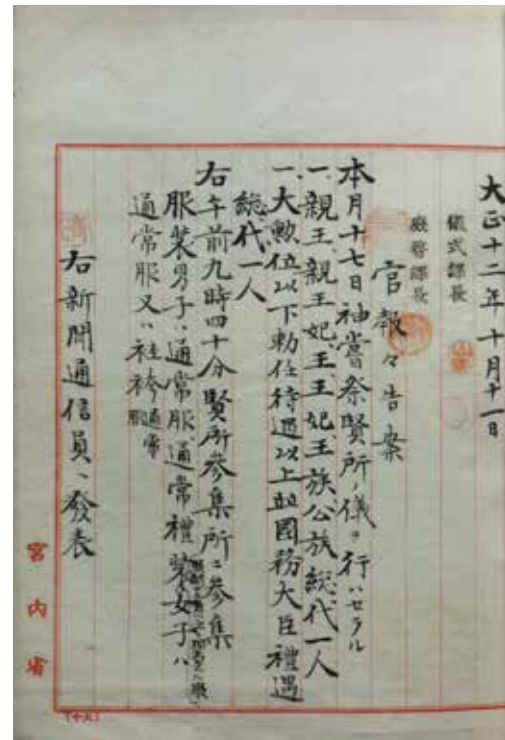 大正十二年十月十一日
儀式課長
廠啓課長
官報々告案
本月十七日神嘗祭賢所ノ儀ヲ行ハセラル
一、親王、親王妃、王、王妃、王族、公族総代一人
一、大勲位以下勅任待遇以上並國務大臣禮遇
総代一人
右午前九時四十分賢所参集所ニ参集
服装男子ハ通常服通常禮装女子ハ
通常服又ハ袿袴通常服
右新聞通信員ヘ發表
宮内省